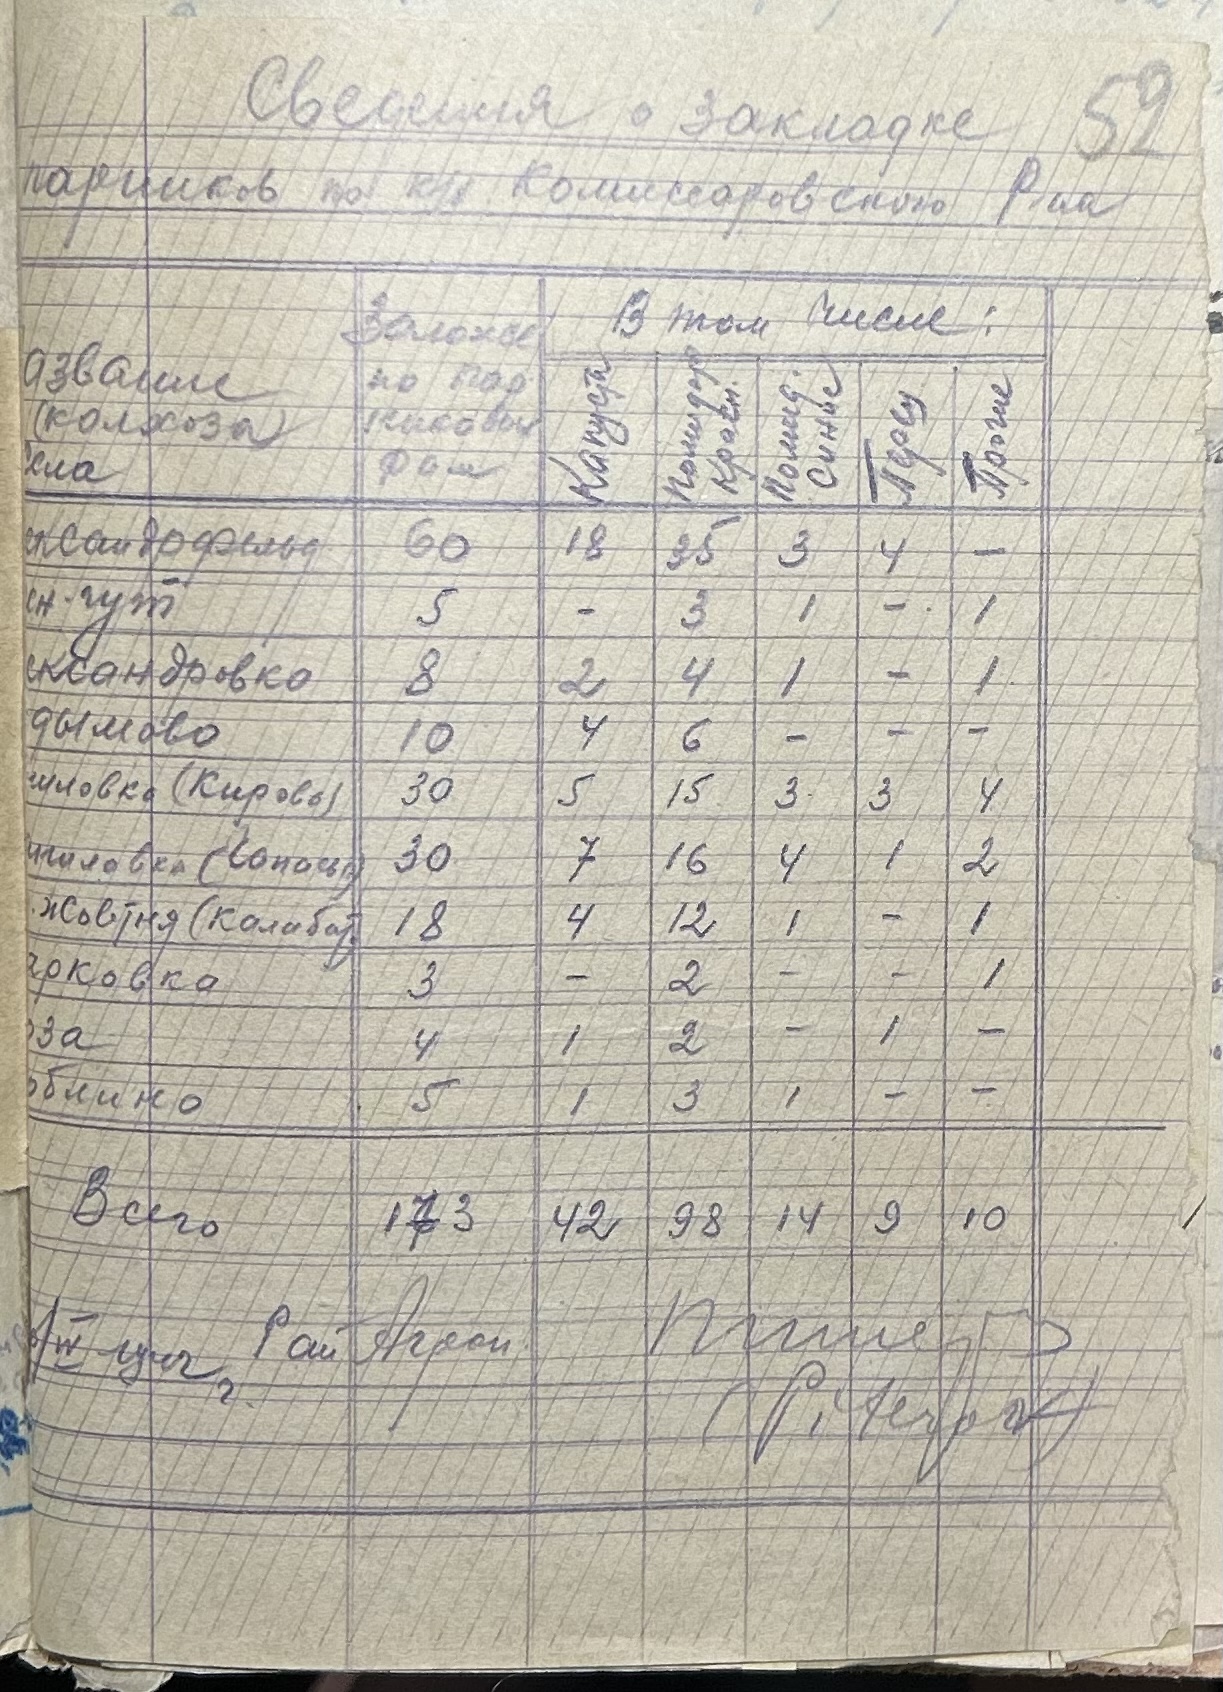 59
Сведения о закладке
парников по к/х Комиссаровского Р-на
азвание
(колхоза)
села
Заложе
но пар
никовых
рам
В том числе:
Капуста
Помидор Красн.
Помид. Синие
Перец
Прочие
ександрофельд 60 18 35 3 4 —
ен-гут 5 - 3 1 - 1
ександровка 8 2 4 1 - 1
дымово 10 4 6 - - -
иловка (Кирова) 30 5 15 3 3 4
30 7 16 4 1 2
Жовтня (Калабат. 18 4 12 1 - 1
арковка 3 - 2 - - 1
оза 4 1 2 - 1 -
облино 5 1 3 1 - -
Всего 173 42 98 14 9 10
Рай Агрон.